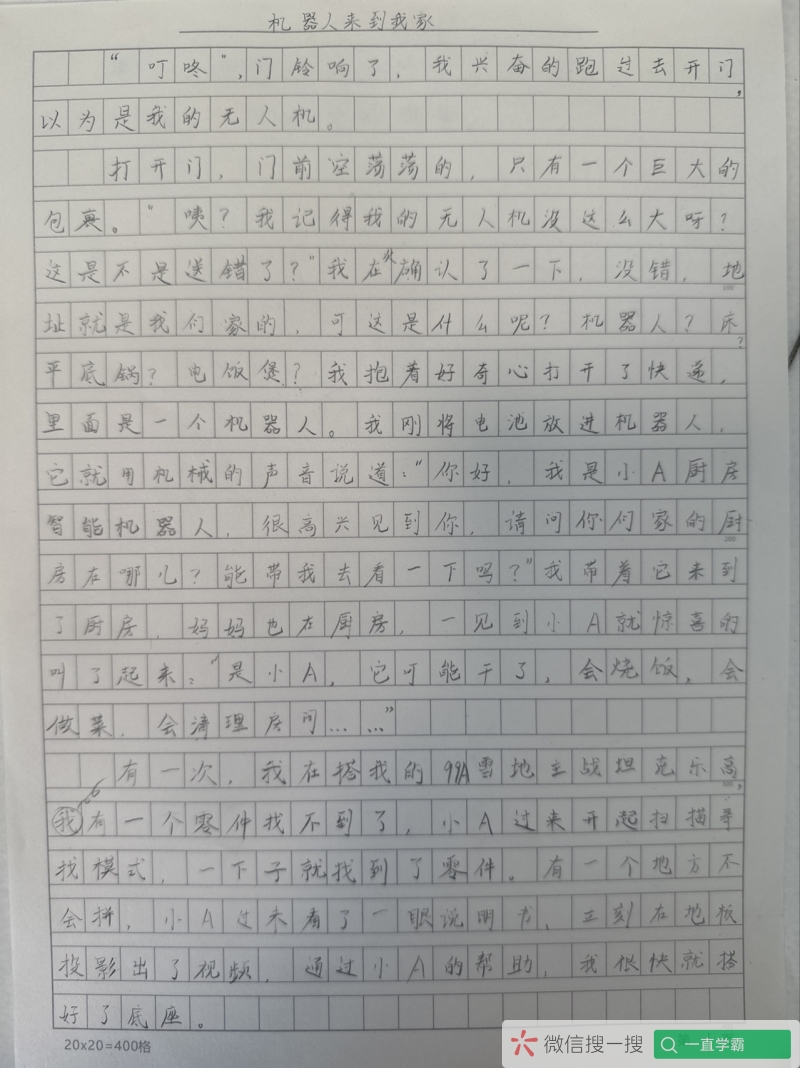 机器人来到我家
“叮咚”，门铃响了，我兴奋的跑过去开门，
以为是我的无人机。
打开门，门前空荡荡的，只有一个巨大的
包裹。“咦？我记得我的无人机没这么大呀？
这是不是送错了？”我在外确认了一下，没错，地
址就是我们家的，可这是什么呢？机器人？床？
平底锅？电饭煲？我抱着好奇心打开了快递，
里面是一个机器人。我刚将电池放进机器人，
它就用机械的声音说道：“你好，我是小A厨房
智能机器人，很高兴见到你，请问你们家的厨
房在哪儿？能带我去看一下吗？”我带着它来到
了厨房，妈妈也在厨房，一见到小A就惊喜的
叫了起来：“是小A，它可能干了，会烧饭，会
做菜，会清理房间……”
有一次，我在搭我的99A雪地主战坦克乐高，
我有一个零件找不到了，小A过来开起扫描寻
找模式，一下子就找到了零件。有一个地方不
会拼，小A过来看了一眼说明书，立刻在地板
投影出了视频，通过小A的帮助，我很快就搭
好了底座。
20x20=400格
微信搜一搜 一直学霸